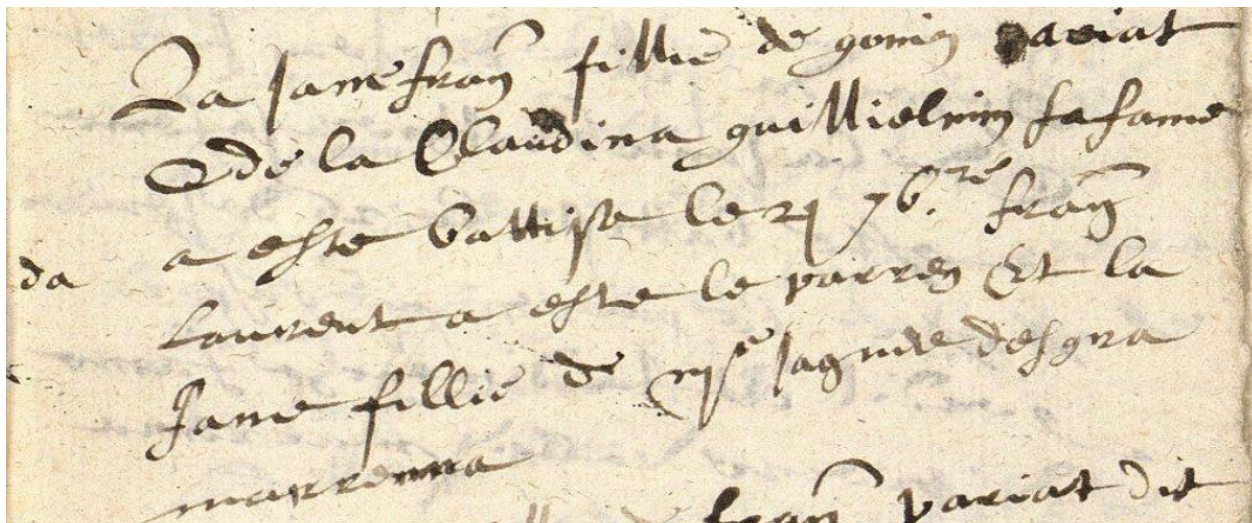 La Jane fran fillie de gonin pariat
Et de la Claudina guillielmin sa fame
a este battise le 21 7b.re fran
da
Laurent a este le parren Et la
Jane fillie de me Jaques desgra
marrenna
fran pariat dit